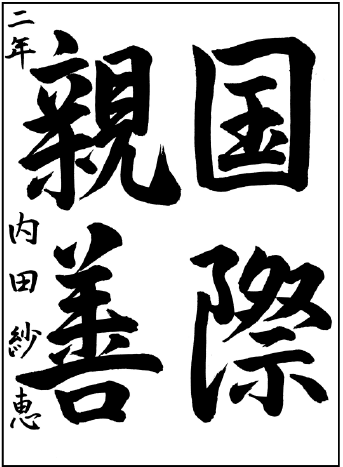 国際
親善
二年 内田紗恵